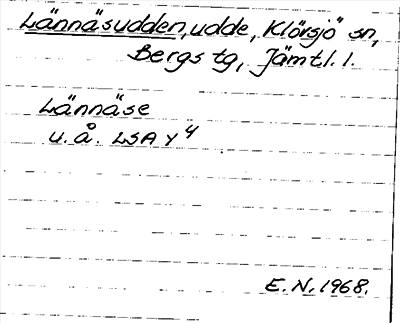 Lännäsudden, udde, Klövsjö sn,
Bergs tg, Jämtl. l.
Lännäse
u. å. LSA Y 4
E. N. 1968.